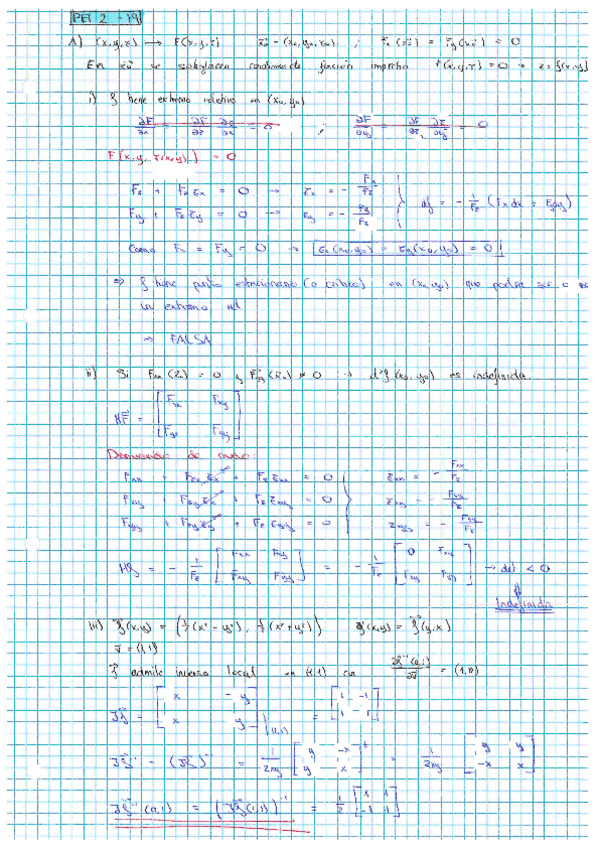 PEI 2 - 19
A) (x,y,z) → F(x,y,z) x̄₀ = (x₀,y₀,z₀) ; F'x(x̄₀) = F'y(x̄₀) = 0
En x̄₀ se satisfacen condiciones de función implícita F(x,y,z) = 0 → z = f(x,y)
i) f tiene extremo relativo en (x₀,y₀)
F(x,y,z(x,y)) = 0
Fx + Fz zx = 0 → zx = - Fx/Fz
Fy + Fz zy = 0 → zy = - Fy/Fz
df = - 1/Fz (Fx dx + Fy dy)
Como Fx = Fy = 0 → zx(x₀,y₀) = zy(x₀,y₀) = 0
⇒ f tiene punto estacionario (o crítico) en (x₀,y₀) que podría ser o
un extremo rel
→ FALSA
ii) Si Fxx(x̄₀) = 0 y Fxy(x̄₀) ≠ 0 → d²f(x₀,y₀) es indefinida.
HF = [Fxx Fxy
Fyx Fyy]
Derivando de nuevo:
Fxx + Fzx zx + Fz zxx = 0 zxx = - Fxx/Fz
Fxy + Fzy zx + Fz zxy = 0 zxy = - Fxy/Fz
Fyy + Fzy zy + Fz zyy = 0 zyy = - Fyy/Fz
Hf = - 1/Fz [Fxx Fxy; Fxy Fyy] = - 1/Fz [0 Fxy; Fxy Fyy] → det < 0
Indefinida
iii) f̄(x,y) = (½(x²-y²), ½(x²+y²)) ḡ(x,y) = f̄(y,x)
v̄ = (1,1)
f̄ admite inversa local en (1,1) con ∂f⁻¹(0,1)/∂v̄ = (1,0)
Jf = [x -y; x y](1,1) = [1 -1; 1 1]
Jf⁻¹ = (Jf)⁻¹ = 1/2xy [y -x; y x]ᵗ = 1/2xy [y y; -x x]
Jf⁻¹(0,1) = (Jf(1,1))⁻¹ = ½ [1 1; -1 1]